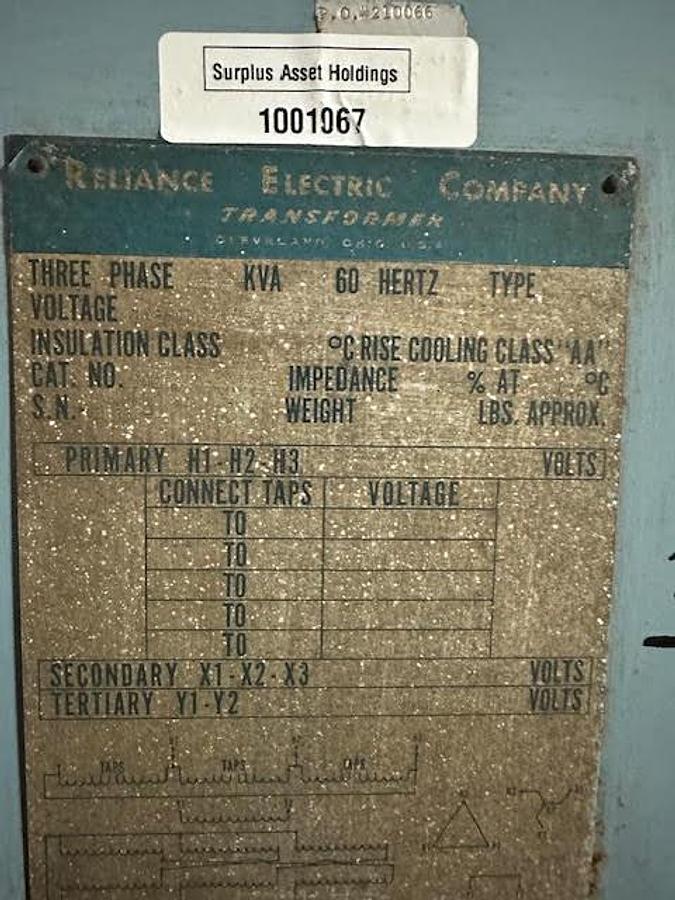 P.O.#210066
Surplus Asset Holdings
1001067
RELIANCE ELECTRIC COMPANY
TRANSFORMER
CLEVELAND, OHIO U.S.A.
THREE PHASE KVA 60 HERTZ TYPE
VOLTAGE
INSULATION CLASS °C RISE COOLING CLASS "AA"
CAT. NO. IMPEDANCE % AT °C
S.N. WEIGHT LBS. APPROX.
PRIMARY H1-H2-H3 VOLTS
CONNECT TAPS VOLTAGE
TO
TO
TO
TO
TO
SECONDARY X1-X2-X3 VOLTS
TERTIARY Y1-Y2 VOLTS
TAPS TAPS TAPS